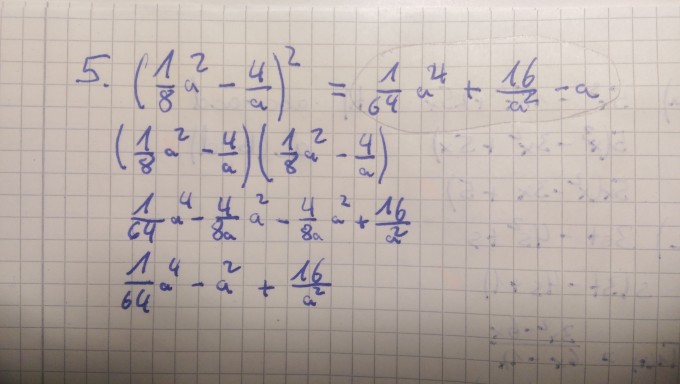 5. (1/8 a² - 4/a)² = 1/64 a⁴ + 16/a² - a
(1/8 a² - 4/a)(1/8 a² - 4/a)
1/64 a⁴ - 4/8a a² - 4/8a a² + 16/a²
1/64 a⁴ - a² + 16/a²